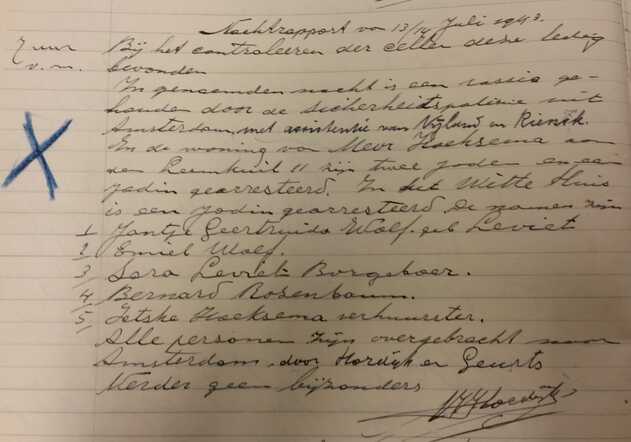 Nachtrapport van 13/14 Juli 1943.
7 uur Bij het controleeren der cellen deze ledig
v.m. bevonden
In genoemden nacht is een razzia ge-
houden door de sicherheitspolitie uit
Amsterdam, met assistentie van Nijland en Rienik.
In de woning van Mevr Hoeksema aan
den Leemkuil 11 zijn twee joden en een
jodin gearresteerd. In het Witte Huis
is een jodin gearresteerd. De namen zijn
1 Jantje Geertruida Wolf. geb Leviet
2 Emiel Wolf.
3 Sara Leviet-Borgeboer.
4 Bernard Rosenbaum.
5 Jetske Hoeksema verhuurster.
Alle personen zijn overgebracht naar
Amsterdam, door Hordijk en Geurts
Verder geen bijzonders